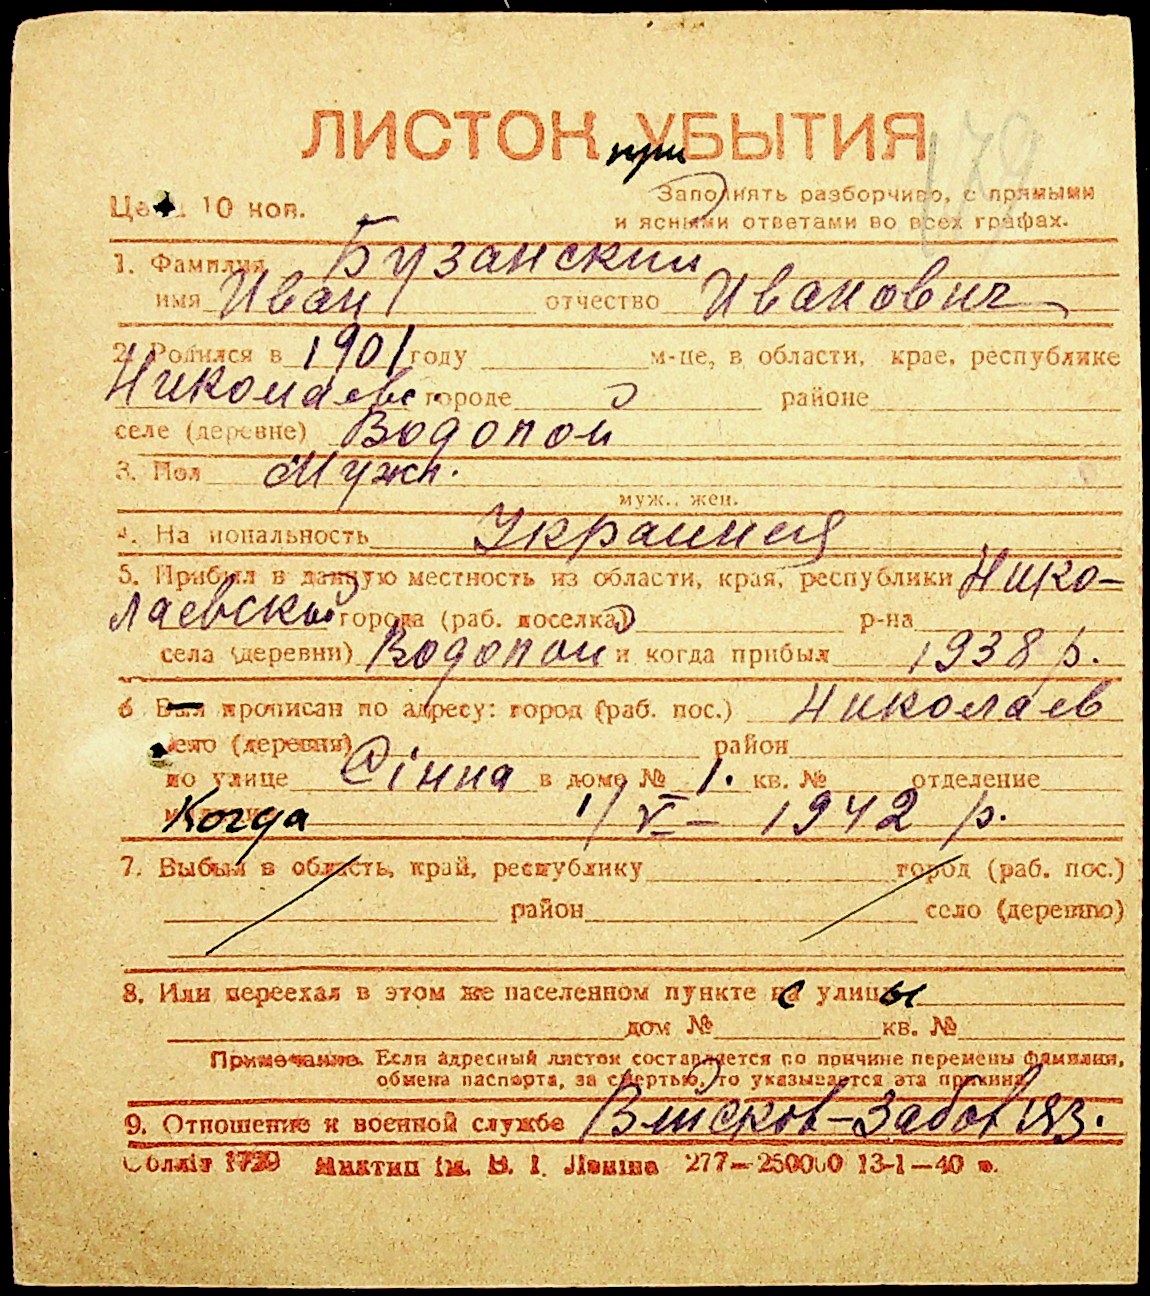 ЛИСТОК при УБЫТИЯ
179
Цена 10 коп.
Заполнять разборчиво, с прямыми
и ясными ответами во всех графах.
1. Фамилия Бузанский
имя Иван отчество Иванович
2. Родился в 1901 году м-це, в области, крае, республике
Николаевс городе районе
селе (деревне) Водопой
3. Пол Мужч.
муж., жен.
4. Национальность Украинец
5. Прибыл в данную местность из области, края, республики Нико-
лаевской города (раб. поселка) р-на
села (деревни) Водопой и когда прибыл 1938 р.
6 Был прописан по адресу: город (раб. пос.) Николаев
село (деревня) район
по улице Сінна в доме № 1. кв. № отделение
Когда 1/V - 1942 р.
7. Выбыл в область, край, республику город (раб. пос.)
район село (деревню)
8. Или переехал в этом же населенном пункте с улицы
дом № кв. №
Примечание. Если адресный листок составляется по причине перемены фамилии,
обмена паспорта, за смертью, то указывается эта причина
9. Отношение к военной службе Війсков-Забовяз.
Облліт 1729 Миктип ім. В. І. Леніна 277—250000 13-1—40 р.